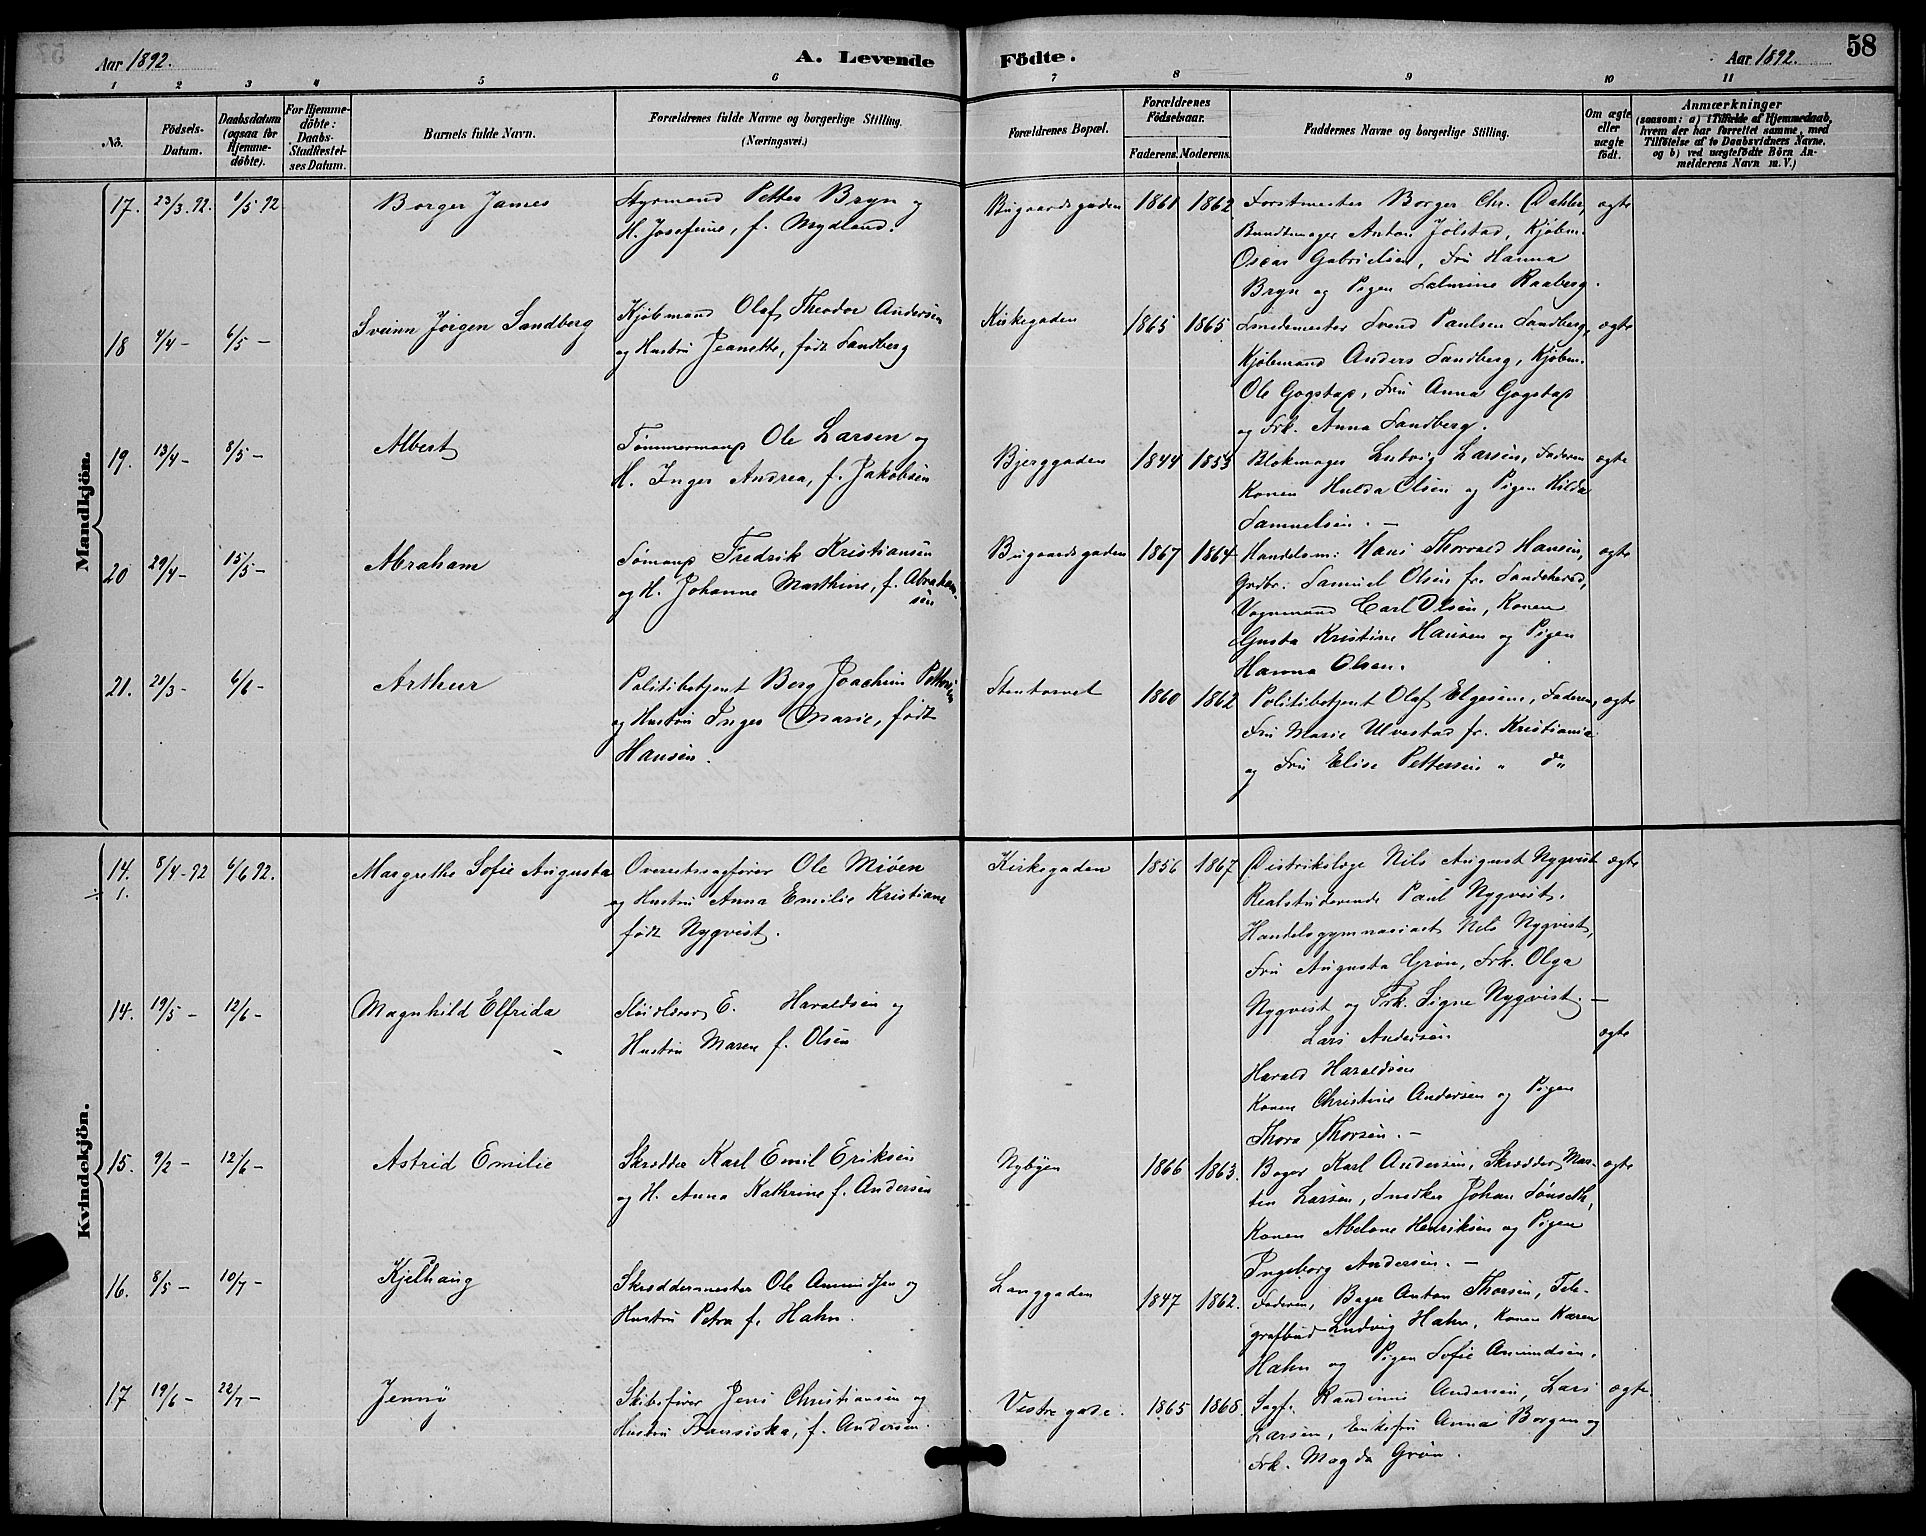 Aar 1892.
A. Levende Födte.
Aar 1892.
58
1 2 3 4 5 6 7 8 9 10 11
No.
Födsels-Datum.
Daabsdatum (ogsaa for Hjemmedöbte).
For Hjemmedöbte: Daabs-Stadfæstelses Datum.
Barnets fulde Navn.
Forældrenes fulde Navne og borgerlige Stilling.
(Næringsvei.)
Forældrenes Bopæl.
Forældrenes Födselsaar.
Faderens. Moderens.
Faddernes Navne og borgerlige Stilling.
Om ægte eller uægte födt.
Anmærkninger
(saasom: a) i Tilfælde af Hjemmedaab, hvem der har forrettet samme, med Tilföielse af to Daabsvidners Navne, og b) ved uægtefödte Börn Anmelderens Navn m. V.)
Mandkjön.
17. 23/3.92. 1/5 92 Borger James
Styrmand Petter Bryn og
H. Josefine, f. Mydland.
Bugaardsgaden 1861 1862
Forstmester Borger Chr. Dahler,
Bundtmager Anton Jölstad, Kjøbm.
Oscar Gabrielsen, Fru Hanna
Bryn og Pigen Raaberg.
ægte
18 4/4 – 6/5 – Sveinn Jörgen Sandberg
Kjöbmand Olaf Theodor Andersen
og Hustru Jeanette, födt Sandberg
Kirkegaden 1865 1865
Smedemester Svend Paulsen Sandberg,
Kjöbmand Anders Sandberg, Kjöbm.
Ole Gogstap, Fru Anna Gogstap
og Frk. Anna Sandberg.
ægte
19. 13/4 – 8/5 – Albert
Tömmermand Ole Larsen og
H. Inger Andrea, f. Jakobsen
Bjerggaden 1844 1853
Blokmager Ludvig Larsen, Faderen
Konen Hulda Olsen og Pigen Hilda
Samuelsen. –
ægte
20 29/4 – 15/5 – Abraham
Sömand Fredrik Kristiansen
og H. Johanne Marthine, f. Abraham-
sen
Bugaardsgaden 1867 1864
Handelsm: Hans Thorvald Hansen,
Grdbr: Samuel Olsen fr. Sandeherad,
Vognmand Carl Olsen, Konen
Gusta Kristine Hansen og Pigen
Hanna Olsen.
ægte
21. 21/3 – 6/6 – Arthur
Politibetjent Berg Joachim Pettersen
og Hustru Inger Marie, födt
Hansen.
Stentorvet 1860 1862
Politibetjent Olaf Elgesem, Faderen,
Fru Marie Ulvestad fr. Kristiania
og Fru Elise Pettersen " do "
ægte
Kvindekjön.
14. 8/4-92 6/6 92. Margrethe Sofie Augusta
÷ 1.
Overretssagförer Ole Miöen
og Hustru Anna Emilie Kristiane
födt Nyqvist.
Kirkegaden 1856 1867
Distriktslæge Nils August Nyqvist
Realstuderende Paul Nyqvist.
Handelsgymnasiast Nils Nyqvist,
Fru Augusta Grøn, Frk. Olga
Nyqvist og Frk. Signe Nyqvist. –
ægte
14. 19/5 – 12/6 – Magnhild Elfrida
E. Haraldsen og
Hustru Maren f. Olsen
Lars Andersen
Harald Haraldsen
Konen Christine Andersen og Pigen
Thora Thorsen. –
ægte
15. 9/2 – 12/6 – Astrid Emilie
Skrædder Karl Emil Eriksen
og H. Anna Kathrine f. Andersen
Nybyen 1866 1863.
Bager Karl Andersen, Skrædder Mar-
tin Larsen, Snedker Johan Sönseth,
Konen Abelone Henriksen og Pigen
Ingeborg Andersen. –
ægte
16. 8/5 – 10/7 – Kjelhaug
Skræddermester Ole Amundsen og
Hustru Petra f. Hahn.
Langgaden 1847 1862.
Faderen, Bager Anton Thorsen, Tele-
grafbud Ludvig Hahn, Konen Karen
Hahn og Pigen Sofie Amundsen.
17 19/6 – 22/7 – Jenny
Skibsförer Jens Christiansen og
Hustru Fransiska, f. Andersen.
Vestre gade. 1865 1868.
Sagf. Randinius Andersen, Lars
Larsen, Enkefru Anna Borgen og
Frk. Magda Grön.
ægte